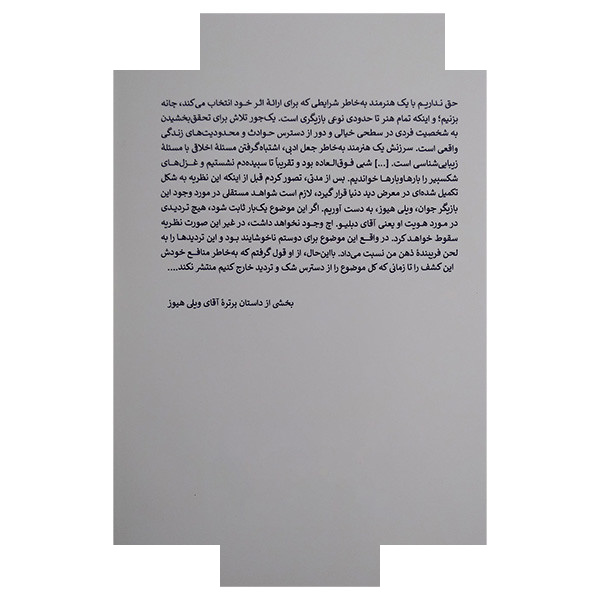 حق نداریم با یک هنرمند به‌خاطر شرایطی که برای ارائهٔ اثر خود انتخاب می‌کند، چانه
بزنیم؛ و اینکه تمام هنر تا حدودی نوعی بازیگری است. یک‌جور تلاش برای تحقق‌بخشیدن
به شخصیت فردی در سطحی خیالی و دور از دسترس حوادث و محدودیت‌های زندگی
واقعی است. سرزنش یک هنرمند به‌خاطر جعل ادبی، اشتباه‌گرفتن مسئلهٔ اخلاقی با مسئلهٔ
زیبایی‌شناسی است. [...] شبی فوق‌العاده بود و تقریباً تا سپیده‌دم نشستیم و غزل‌های
شکسپیر را بارهاوبارها خواندیم. پس از مدتی، تصور کردم قبل از اینکه این نظریه به شکل
تکمیل شده‌ای در معرض دید دنیا قرار گیرد، لازم است شواهد مستقلی در مورد وجود این
بازیگر جوان، ویلی هیوز، به دست آوریم. اگر این موضوع یک‌بار ثابت شود، هیچ تردیدی
در مورد هویت او یعنی آقای دبلیو. اچ وجود نخواهد داشت، در غیر این صورت نظریه
سقوط خواهد کرد. در واقع این موضوع برای دوستم ناخوشایند بود و این تردیدها را به
لحن فریبندهٔ ذهن من نسبت می‌داد. بااین‌حال، از او قول گرفتم که به‌خاطر منافع خودش
این کشف را تا زمانی که کل موضوع را از دسترس شک و تردید خارج کنیم منتشر نکند....
بخشی از داستان پرترهٔ آقای ویلی هیوز